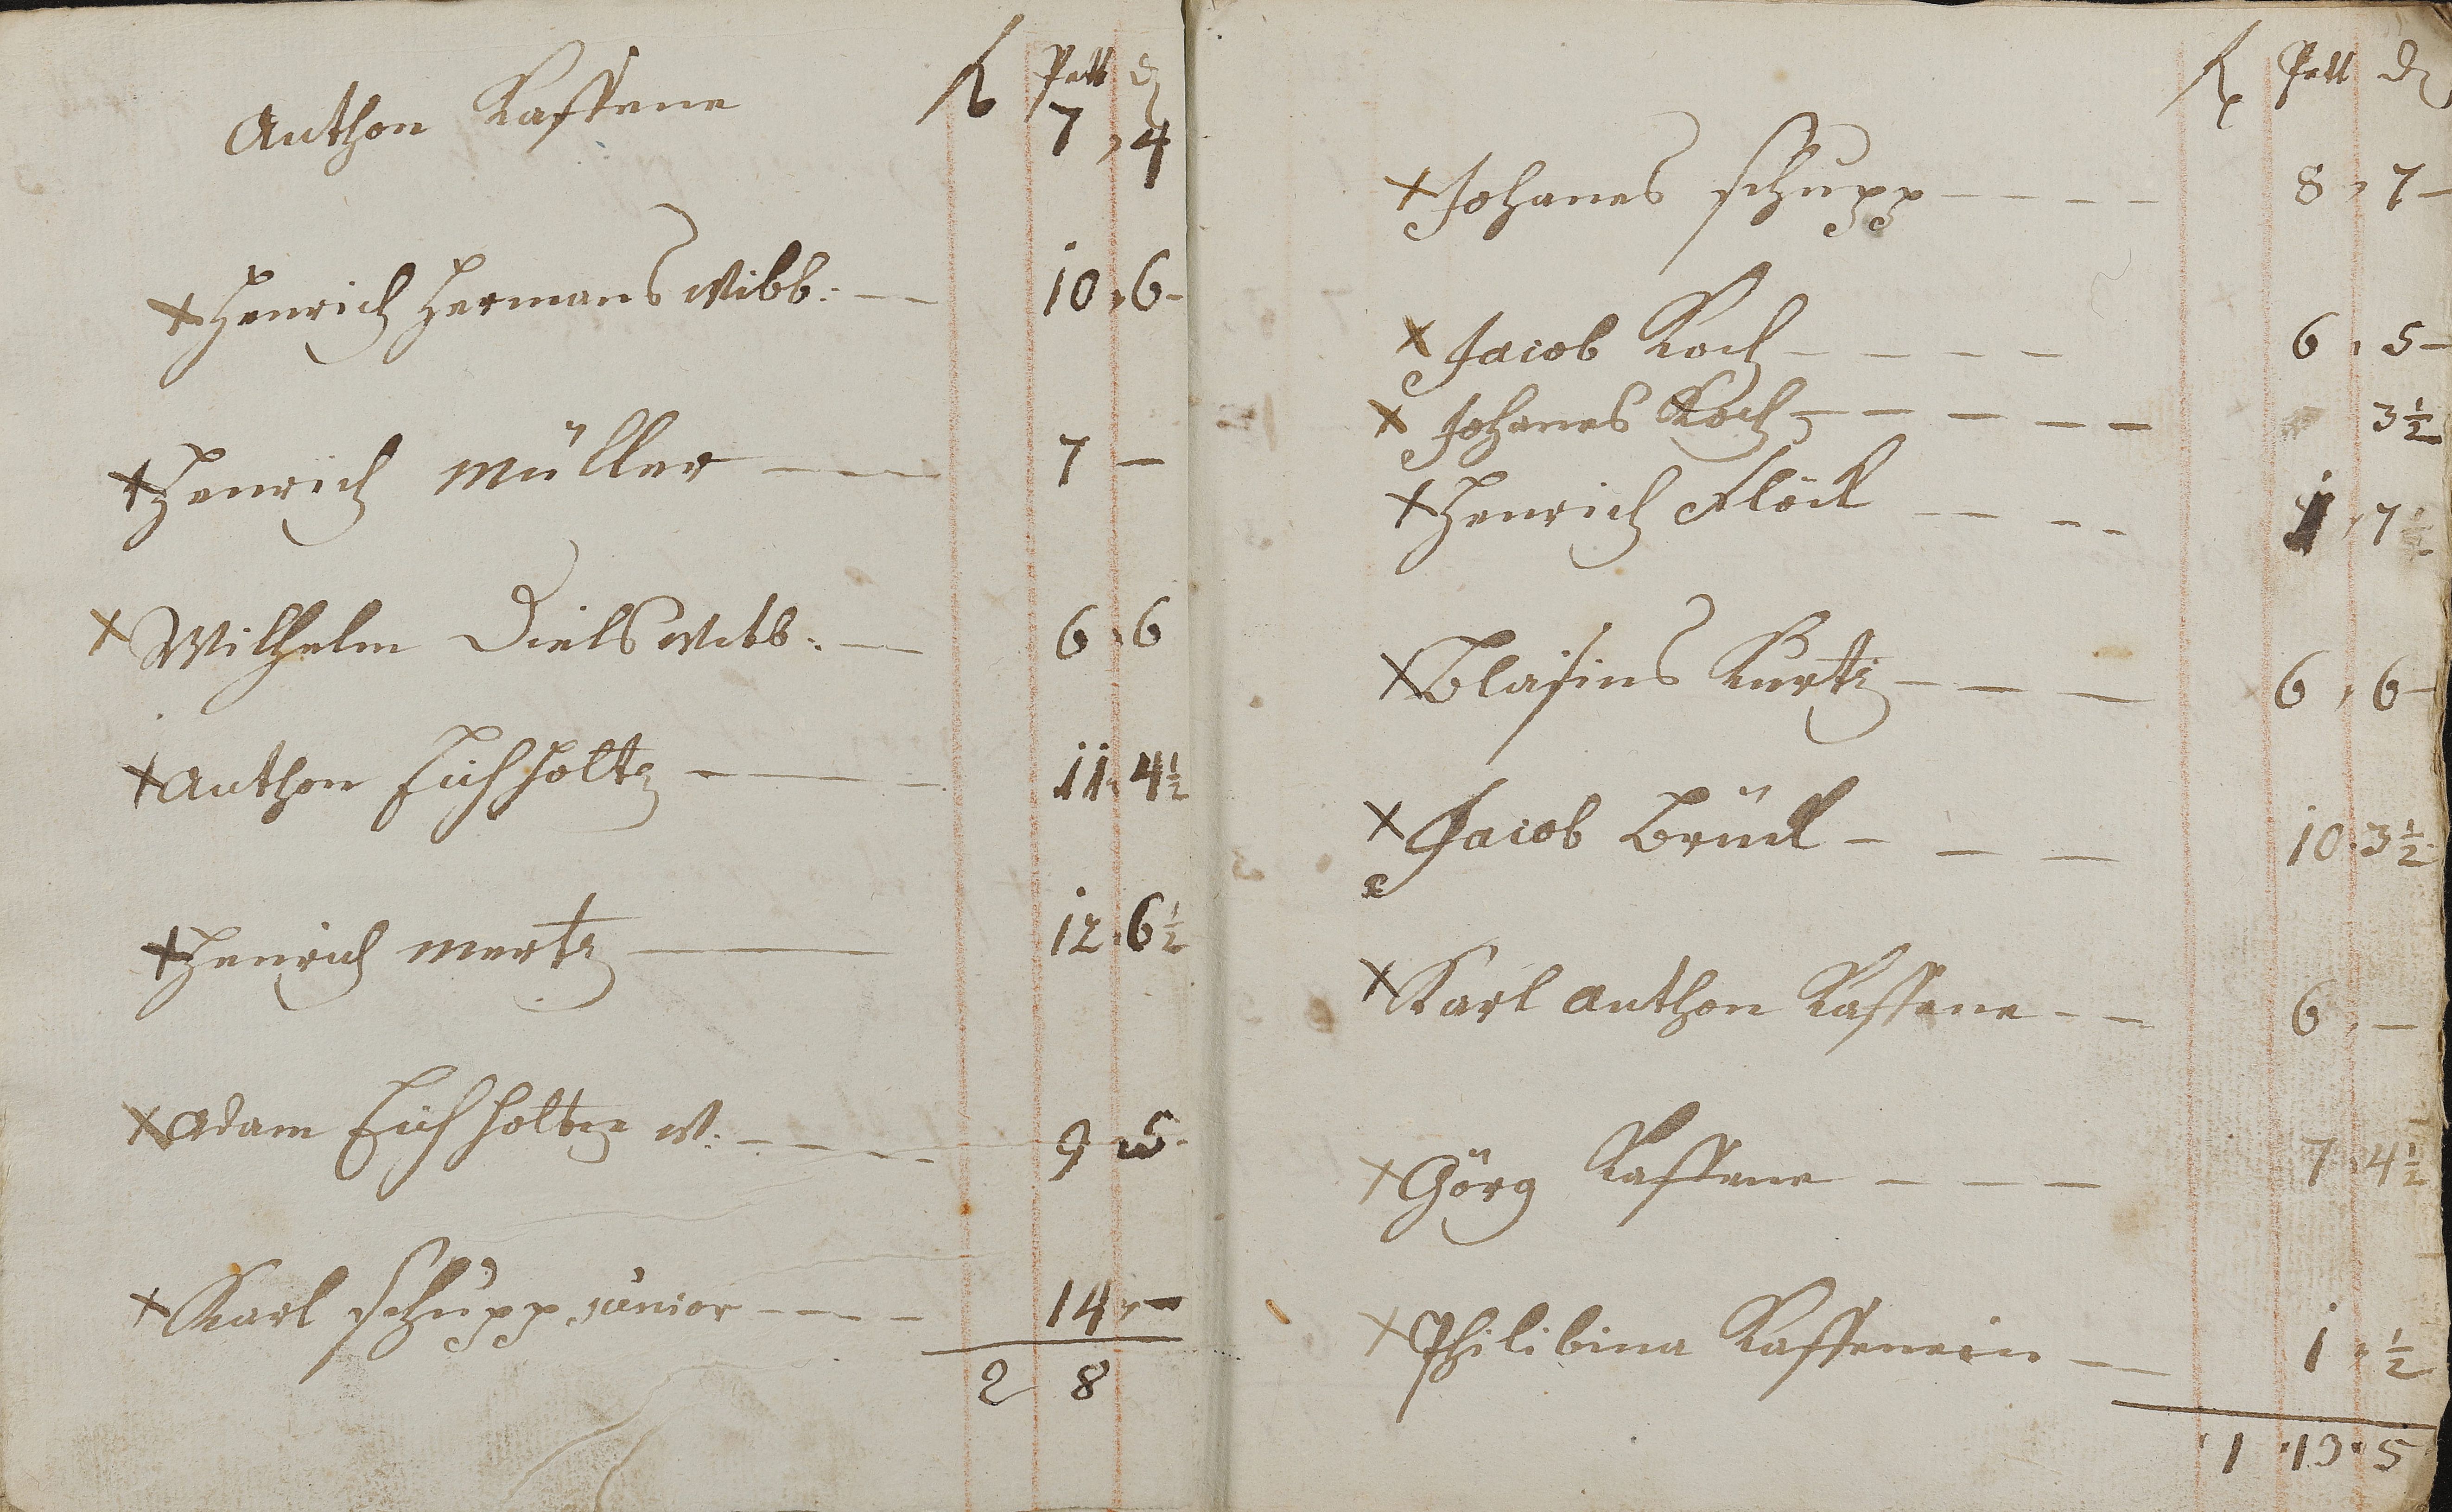 Anthon Kassene
R Pett d
7 , 4
+ Henrich Hermans Wibb: — 10 , 6 -
+ Henrich Müller — 7 —
+ Wilhelm Diels Wibb: — 6 , 6
+ Anthon Eichholtz — 11 , 4½
+ Henrich Mertz — 12 , 6½
+ Adam Eichholtz W: — 9 , 5 -
+ Karl Schupp junior — 14 , —
2 8
R Pett d
+ Johanes Schupp — 8 , 7 —
+ Jacob Koch — 6 , 5 —
+ Johanes Koch — 3½
+ Henrich Flöck — 1 , 7½
+ Blasius Kurtz — 6 , 6 —
+ Jacob Brück — 10 . 3½
+ Karl Anthon Kassene — 6 , —
+ Görg Kassene — 7 , 4½
+ Philibina Kassenein — 1 , ½
1 . 10 . 5